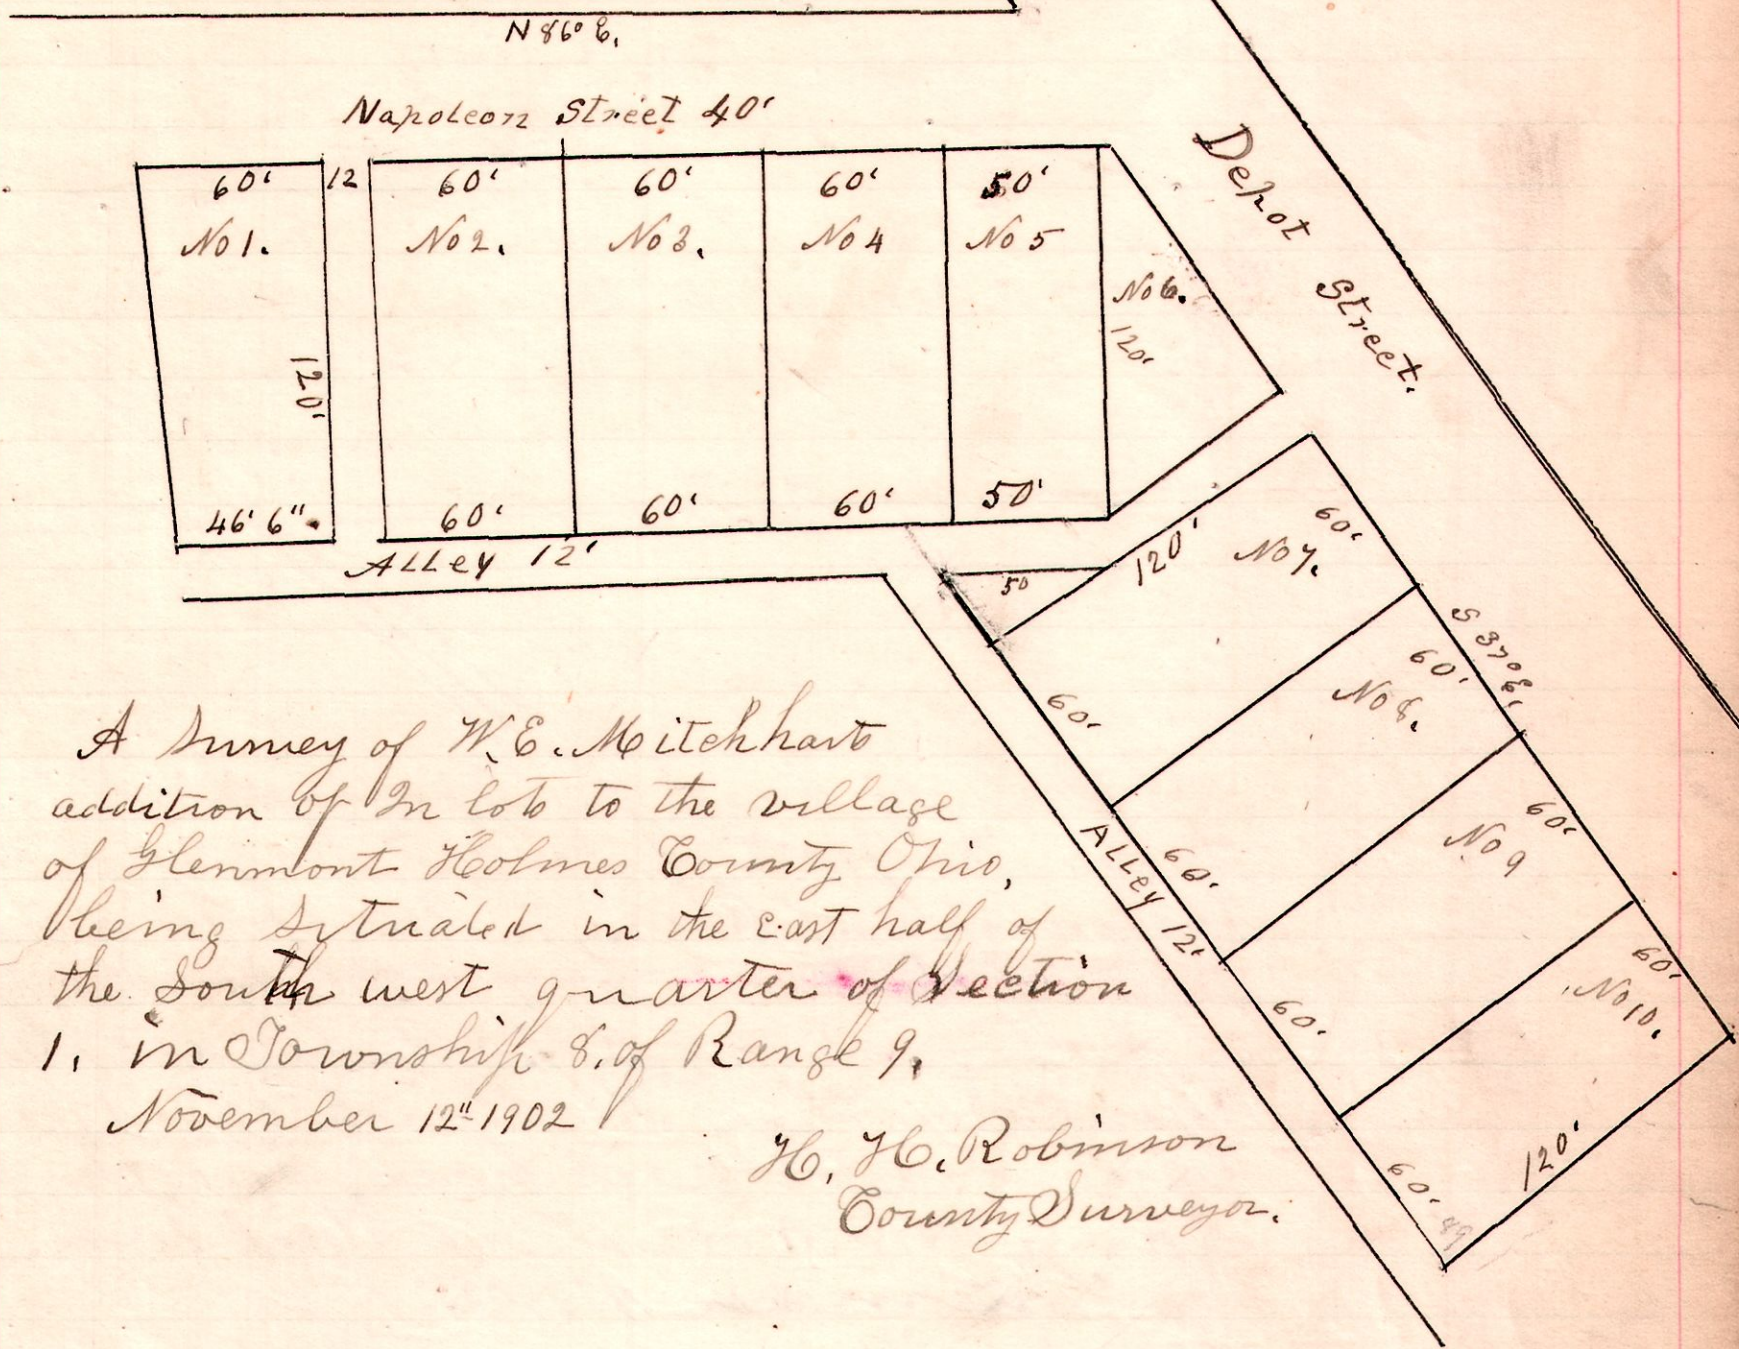 N 86° E.
Napoleon Street 40'
60' 12 60' 60' 60' 50'
No 1. No 2. No 3. No 4 No 5
No 6.
120'
120'
46' 6". 60' 60' 60' 50'
Alley 12'
Depot
Street.
50
120'
60'
No 7.
S 37° E.
60'
60'
No 8.
60'
60'
No 9
Alley 12'
60'
60'
No 10.
60'
120'
89
A Survey of W. E. Mitchharts
addition of In lots to the village
of Glenmont Holmes County Ohio,
being Situated in the east half of
the South west quarter of Section
1. in Township 8. of Range 9.
November 12" 1902
H. H. Robinson
County Surveyor.